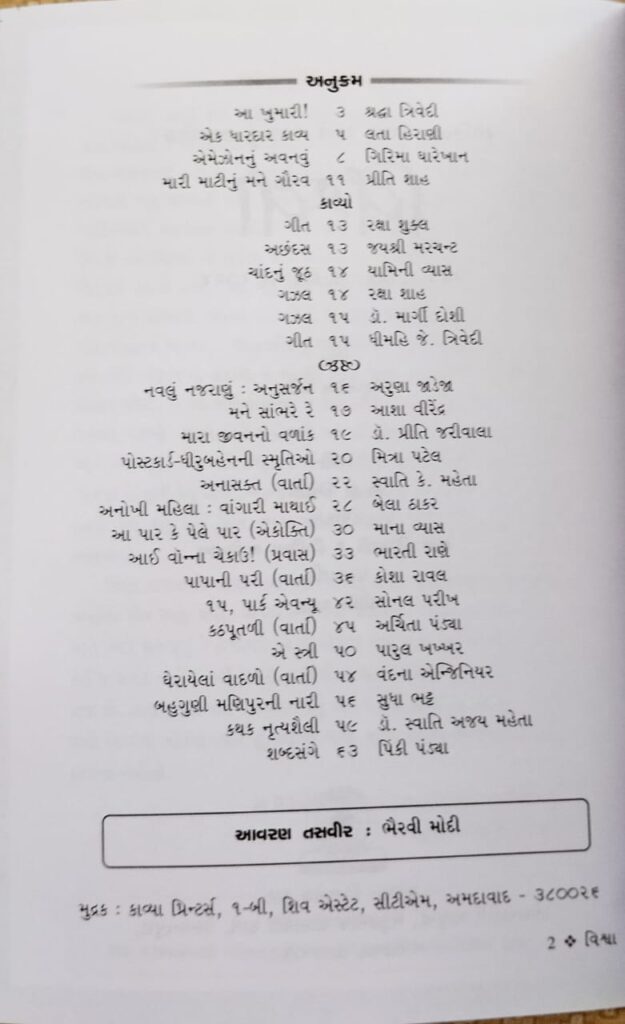 અનુક્રમ
આ ખુમારી! ૩ શ્રદ્ધા ત્રિવેદી
એક ધારદાર કાવ્ય ૫ લતા હિરાણી
એમેઝોનનું અવનવું ૮ ગિરિમા ઘારેખાન
મારી માટીનું મને ગૌરવ ૧૧ પ્રીતિ શાહ
કાવ્યો
ગીત ૧૩ રક્ષા શુક્લ
અછંદસ ૧૩ જયશ્રી મરચન્ટ
ચાંદનું જૂઠ ૧૪ યામિની વ્યાસ
ગઝલ ૧૪ રક્ષા શાહ
ગઝલ ૧૫ ડૉ. માર્ગી દોશી
ગીત ૧૫ ધીમહિ જે. ત્રિવેદી
નવલું નજરાણું : અનુસર્જન ૧૬ અરુણા જાડેજા
મને સાંભરે રે ૧૭ આશા વીરેંદ્ર
મારા જીવનનો વળાંક ૧૯ ડૉ. પ્રીતિ જરીવાલા
પોસ્ટકાર્ડ-ધીરુબહેનની સ્મૃતિઓ ૨૦ મિત્રા પટેલ
અનાસક્ત (વાર્તા) ૨૨ સ્વાતિ કે. મહેતા
અનોખી મહિલા : વાંગારી માથાઈ ૨૮ બેલા ઠાકર
આ પાર કે પેલે પાર (એકોક્તિ) ૩૦ માના વ્યાસ
આઈ વૉન્ના ચેકાઉ! (પ્રવાસ) ૩૩ ભારતી રાણે
પાપાની પરી (વાર્તા) ૩૬ કોશા રાવલ
૧૫, પાર્ક એવન્યૂ ૪૨ સોનલ પરીખ
કઠપૂતળી (વાર્તા) ૪૫ અર્ચિતા પંડ્યા
એ સ્ત્રી ૫૦ પારુલ ખખ્ખર
ઘેરાયેલાં વાદળો (વાર્તા) ૫૪ વંદના એન્જિનિયર
બહુગુણી મણિપુરની નારી ૫૬ સુધા ભટ્ટ
કથક નૃત્યશૈલી ૫૯ ડૉ. સ્વાતિ અજય મહેતા
શબ્દસંગે ૬૩ પિંકી પંડ્યા
આવરણ તસવીર : ભૈરવી મોદી
મુદ્રક : કાવ્યા પ્રિન્ટર્સ, ૧-બી, શિવ એસ્ટેટ, સીટીએમ, અમદાવાદ - ૩૮૦૦૨૬
2 ❖ વિશ્વા